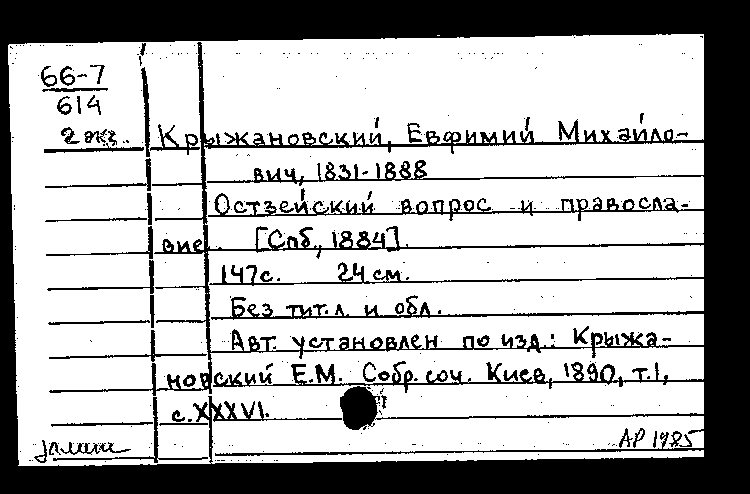 66-7
614
2 экз.
Крыжановский, Евфимий Михайло-
вич, 1831-1888
Остзейский вопрос и правосла-
вие. [Спб, 1884].
147с. 24см.
Без тит.л. и обл.
Авт. установлен по изд.: Крыжа-
новский Е.М. Собр. соч. Киев, 1890, т.1,
с.XXXVI.
АР 1985